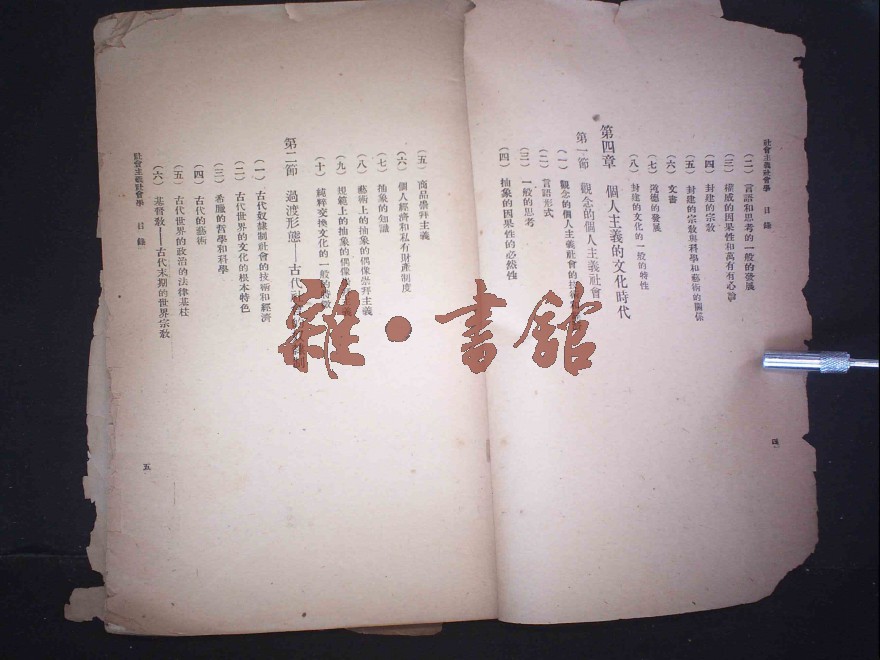 社會主義社會學　目錄
(二) 言語和思考的一般的發展
(三) 權威的因果性和萬有有心論
(四) 封建的宗敎
(五) 封建的宗敎與科學和藝術的關係
(六) 文書
(七) 道德的發展
(八) 封建的文化的一般的特性
第四章　個人主義的文化時代
第一節　觀念的個人主義社會
(一) 觀念的個人主義社會的技術
(二) 言語形式
(三) 一般的思考
(四) 抽象的因果性的必然性
四
(五) 商品崇拜主義
(六) 個人經濟和私有財產制度
(七) 抽象的知識
(八) 藝術上的抽象的偶像崇拜主義
(九) 規範上的抽象的偶像
(十) 純粹交換文化的一般的特徵
第二節　過渡形態——古代社
(一) 古代奴隸制社會的技術和經濟
(二) 古代世界的文化的根本特色
(三) 希臘的哲學和科學
(四) 古代的藝術
(五) 古代世界的政治的法律基柱
(六) 基督敎——古代末期的世界宗敎
社會主義社會學　目錄
五
雜·書館